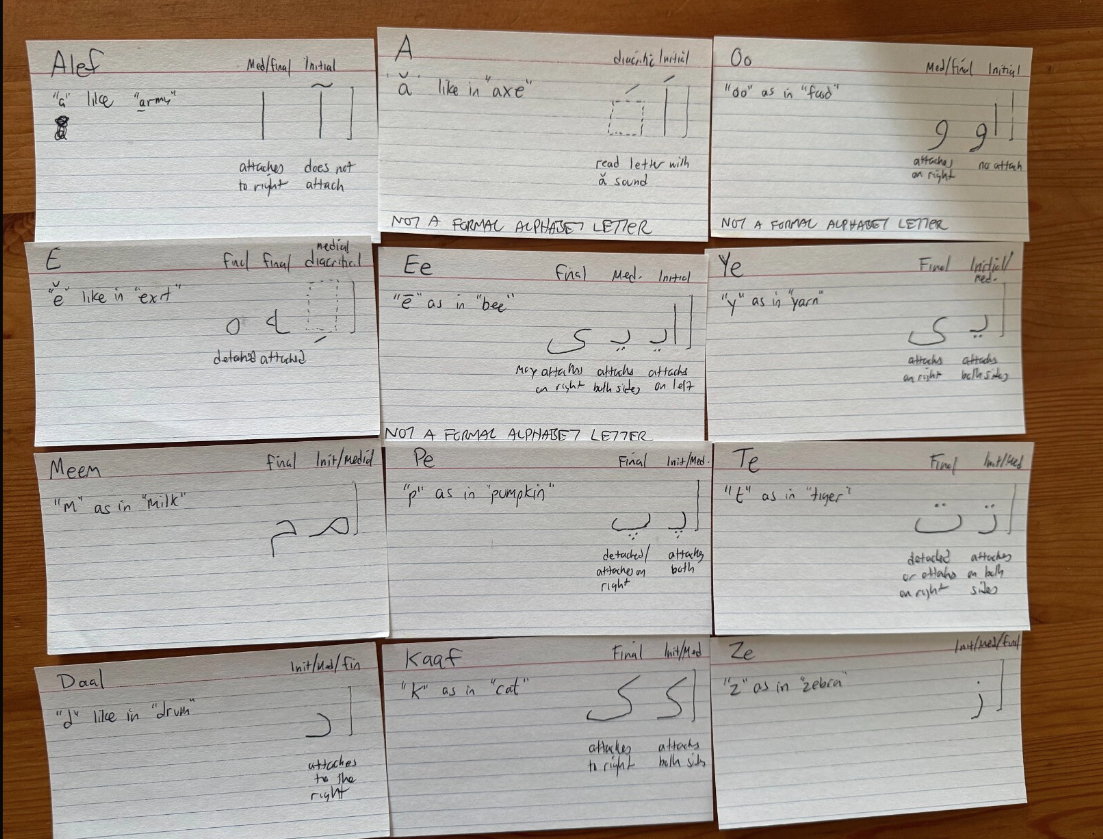 Alef
Med/final Initial
"a" like "army"
ا آ
attaches does not
to right attach
A
diacritic Initial
"ă" like in "axe"
َ اَ
read letter with
ă sound
NOT A FORMAL ALPHABET LETTER
Oo
Med/final Initial
"oo" as in "food"
و او
attaches no attach
on right
NOT A FORMAL ALPHABET LETTER
E
final final medial
diacritical
"ĕ" like in "exit"
ه ـه ِ
detatched attached
Ee
Final Med. Initial
"ē" as in "bee"
ی یـ ایـ
May attaches attachs attachs
on right both sides on left
NOT A FORMAL ALPHABET LETTER
Ye
Final Initial/
med.
"y" as in "yarn"
ی یـ
attachs attachs
on right both sides
Meem
final Init/Medial
"M" as in "Milk"
م مـ
Pe
Final Init/Med.
"p" as in "pumpkin"
پ پـ
detached/ attaches
attaches on both
right
Te
Final Init/Med
"t" as in "tiger"
ت تـ
detached attaches
or attachs on both
on right sides
Daal
Init/Med/fin
"d" like in "drum"
د
attaches
to the
right
Kaaf
Final Init/Med
"K" as in "cat"
ک کـ
attaches attachs
to right both sids
Ze
Init/Med/final
"z" as in "zebra"
ز